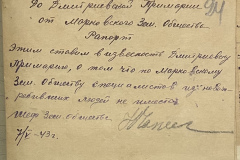 До Дмитриевской Примарии
от Марковского Зем. Общества
Рапорт
Этим ставит в известность Дмитриевску
Примарию, о том что по Марковскому
Зем. Обществу специалистов
людей не имеется
Зем. общества
7/V-43г.